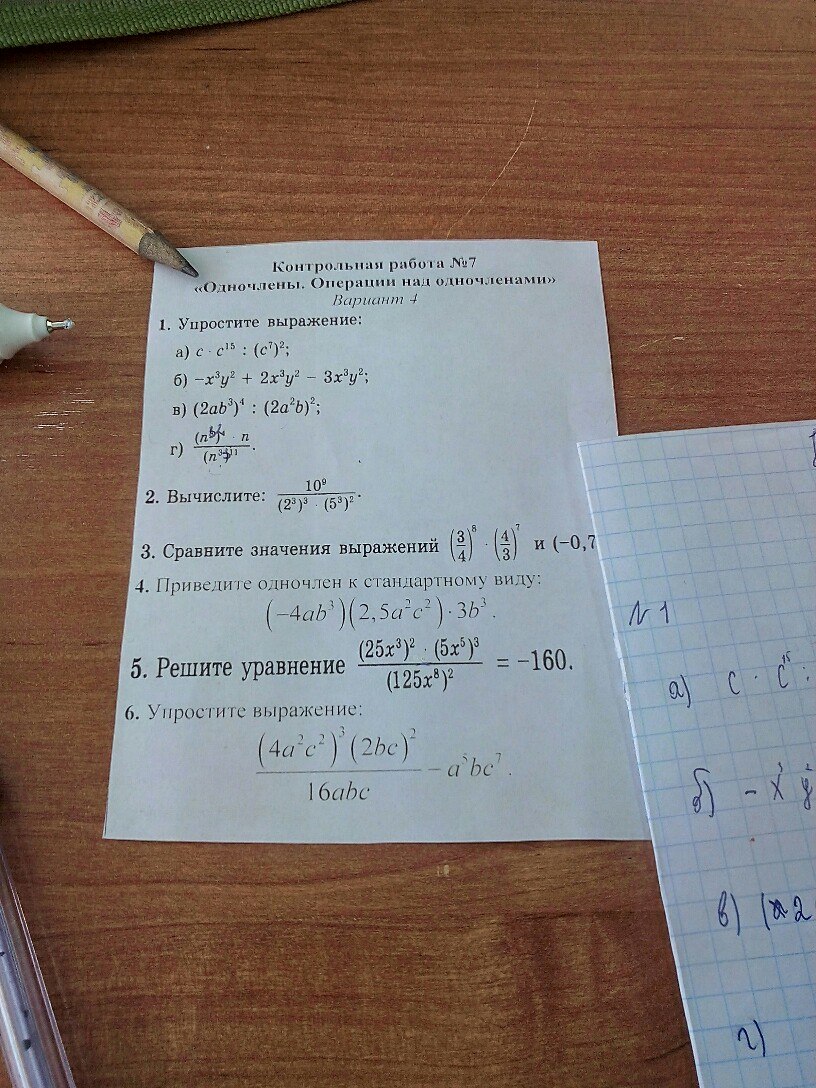 Контрольная работа №7
«Одночлены. Операции над одночленами»
Вариант 4
1. Упростите выражение:
а) c · c¹⁵ : (c⁷)²;
б) −x³y² + 2x³y² − 3x³y²;
в) (2ab³)⁴ : (2a²b)²;
г)
2. Вычислите: 10⁹ / ((2³)³ · (5³)²).
3. Сравните значения выражений (3/4)⁸ · (4/3)⁷ и (−0,7
4. Приведите одночлен к стандартному виду:
(−4ab³)(2,5a²c²) · 3b³.
5. Решите уравнение ((25x³)² · (5x⁵)³) / (125x⁸)² = −160.
6. Упростите выражение:
((4a²c²)³(2bc)²) / (16abc) − a⁵bc⁷.
№1
а) c · c¹⁵ :
б) − x³ y²
в) (2
г)